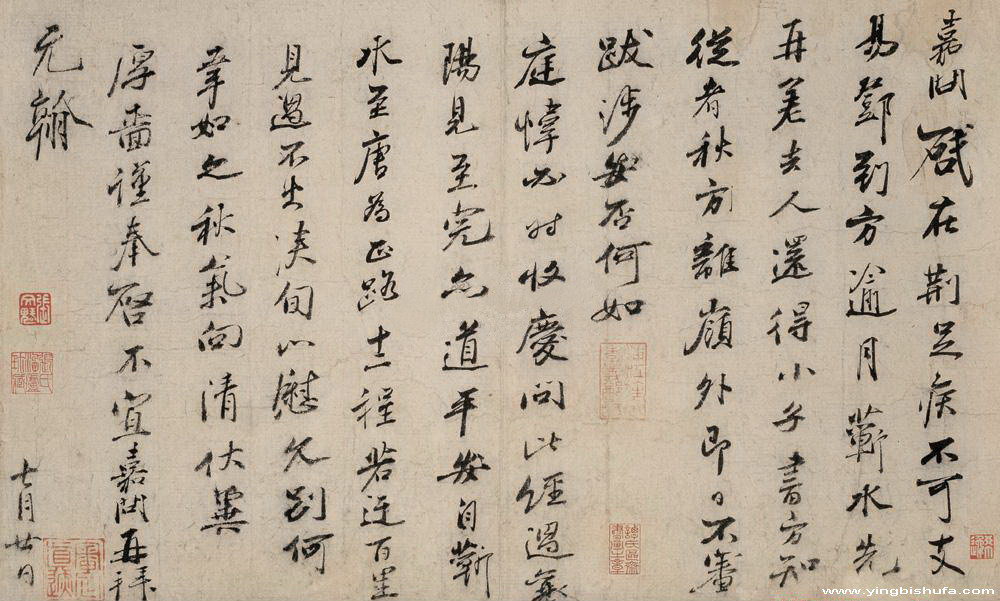 嘉問啟在荊足疾不可支
易鄧到方逾月蘄水先
再差去人還得小子書方知
從者秋方離嶺外即日不審
跋涉安否何如
庭幃必時收慶問比經過襄
陽見至完亦道平安自蘄
水至唐為正路十一程若迂百里
見過不出浹旬以慰久別何
幸如之秋氣向清伏冀
厚嗇謹奉啓不宣嘉問再拜
元翰
七月廿日
www.yingbishufa.com